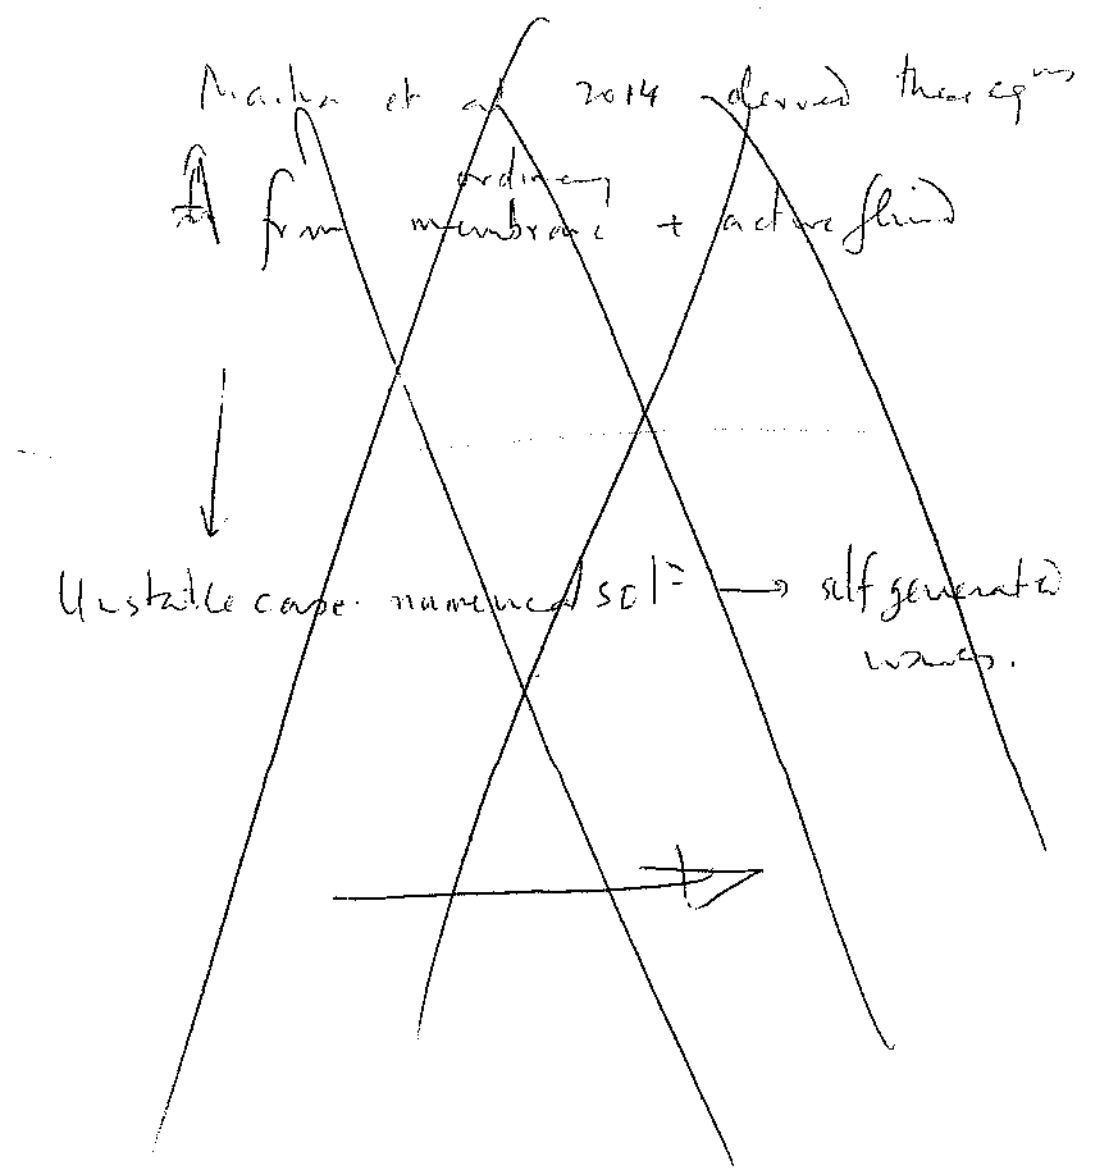 et al 2014 derived these eqⁿˢ
ordinary
from membrane + active fluid
Unstable case. numerical solⁿ → self generated
waves.